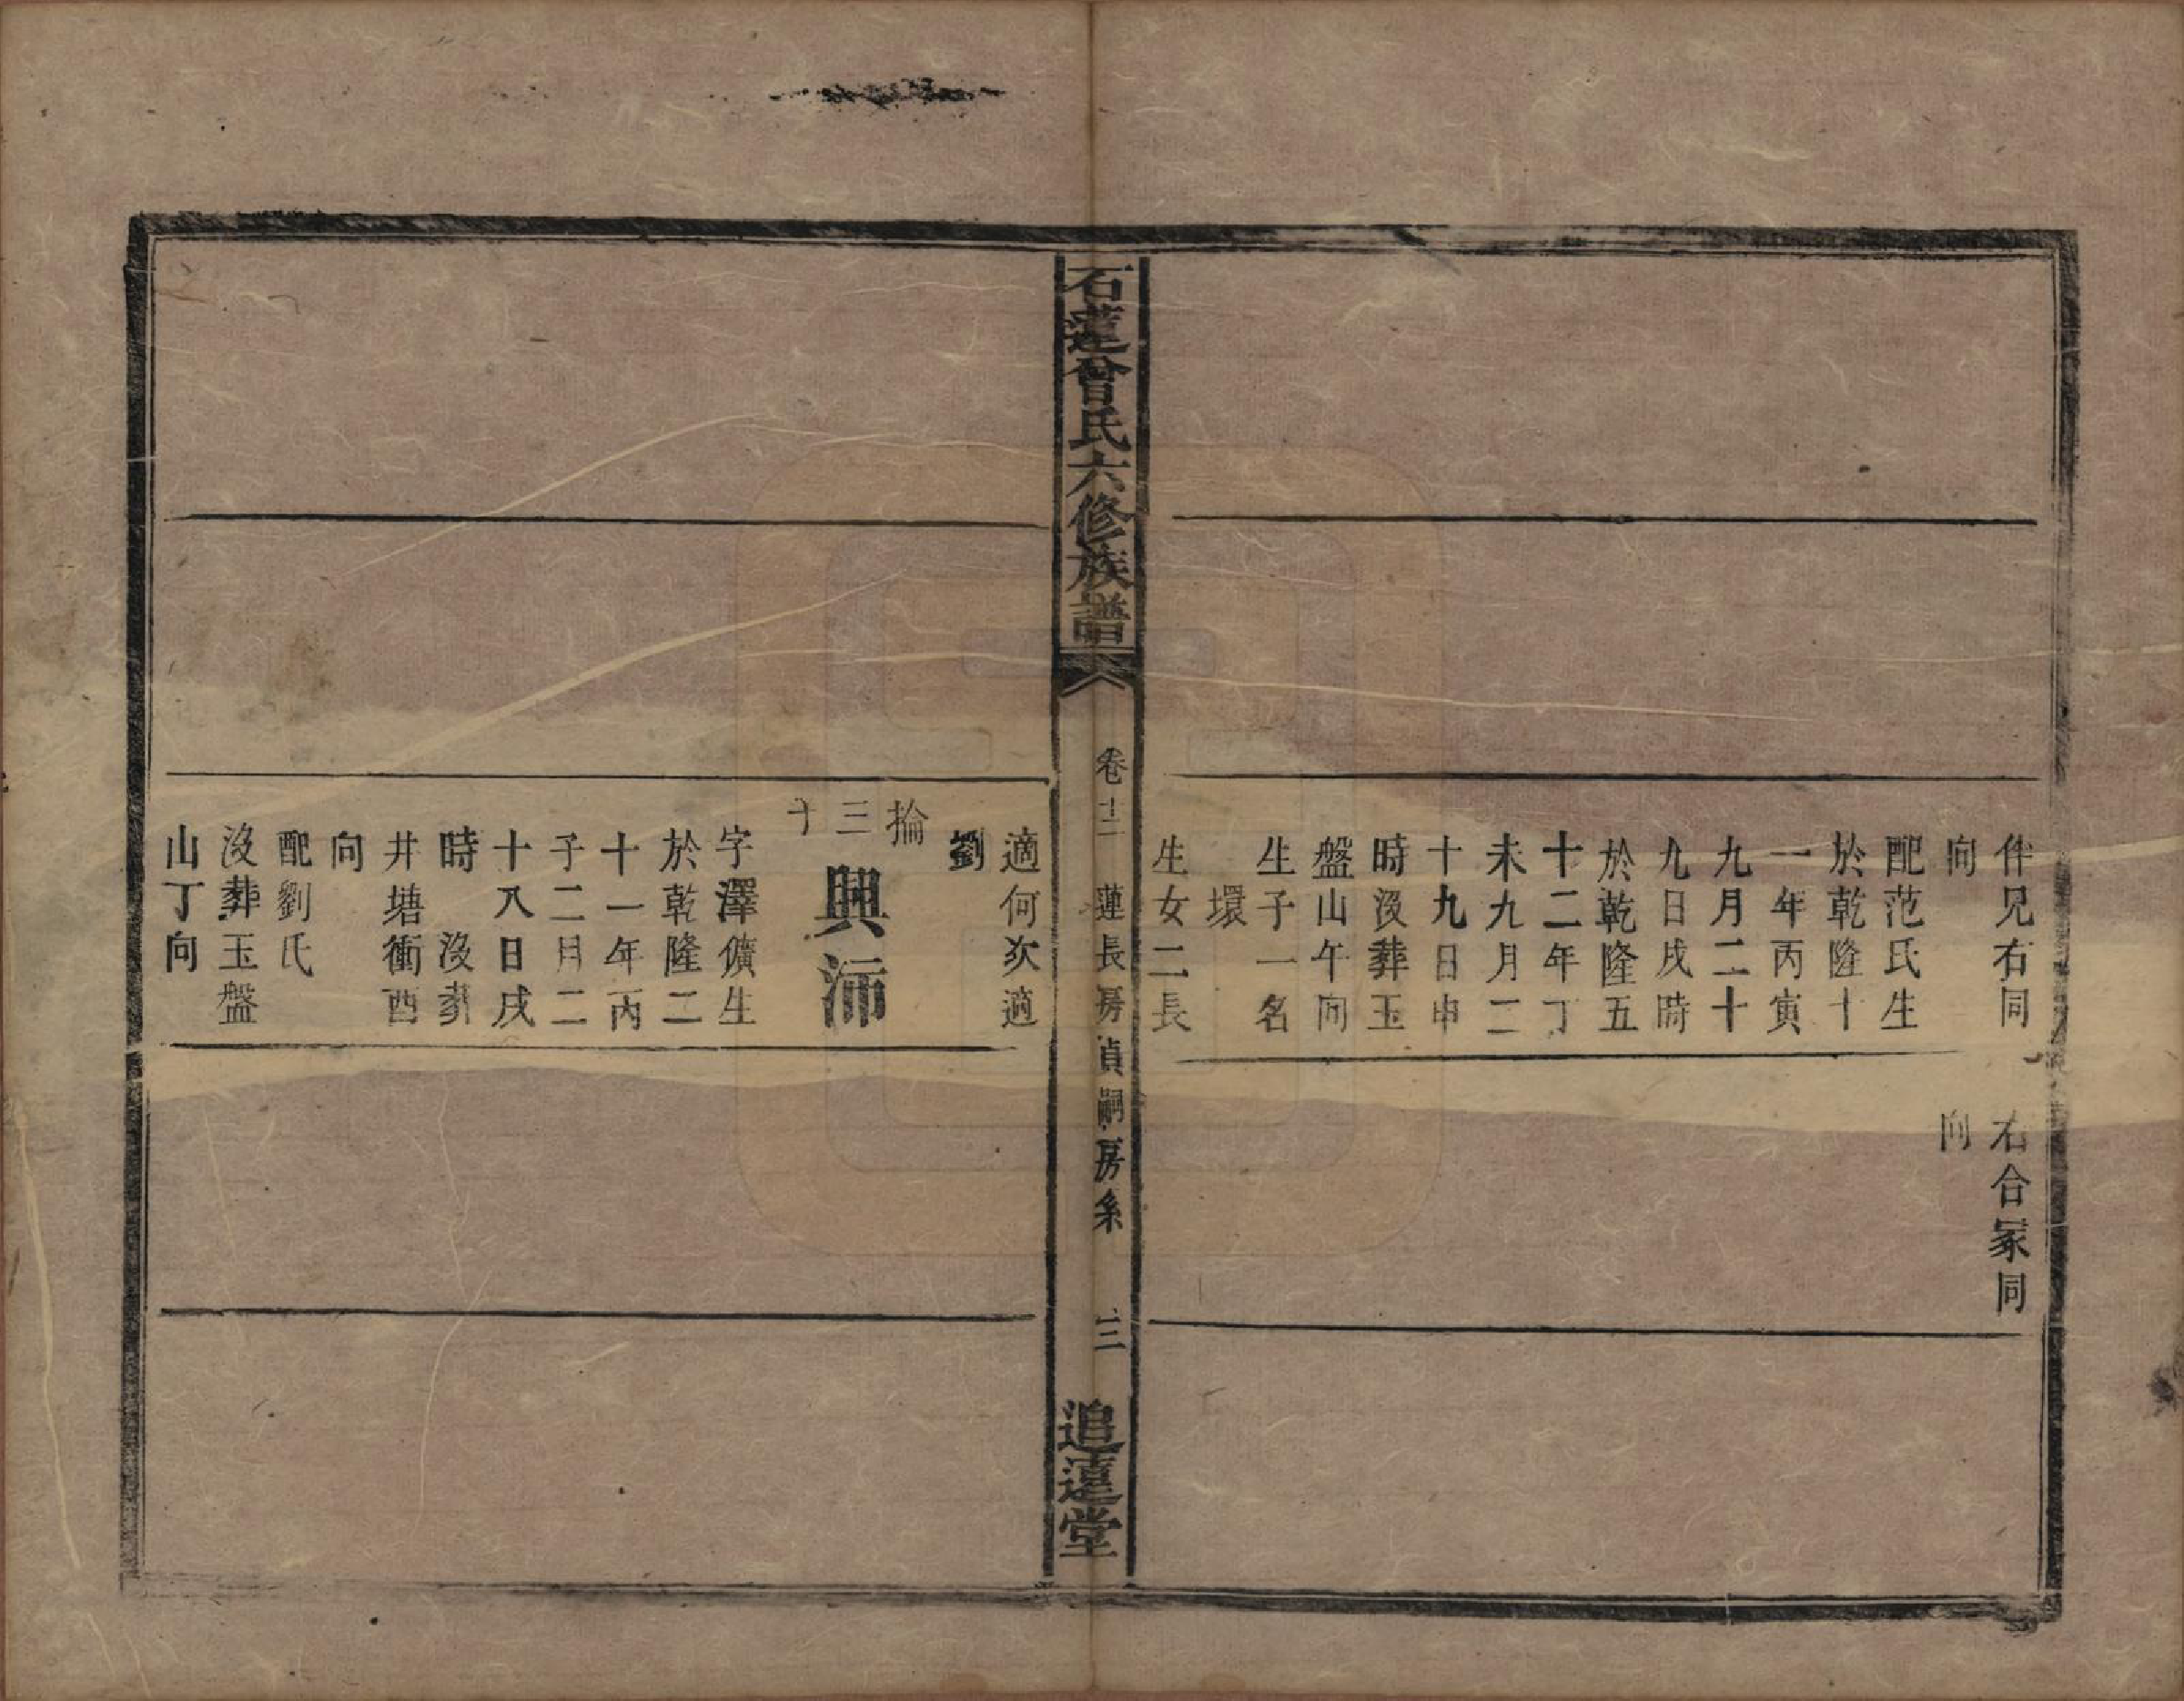 伴兄右同
向
配范氏生
於乾隆十
一年丙寅
九月二十
九日戌時
於乾隆五
十二年丁
未九月二
十九日申
時沒葬玉
盤山午向
生子一名
環
生女二長
右合冢同
向
石蓮曾氏六修族譜
卷十二
蓮長房貞嗣房系
三
追遠堂
適何次適
劉
掄三十
興沛
字澤儣生
於乾隆二
十一年丙
子二月二
十八日戌
時 沒葬
井塘衝酉
向
配劉氏
沒葬玉盤
山丁向